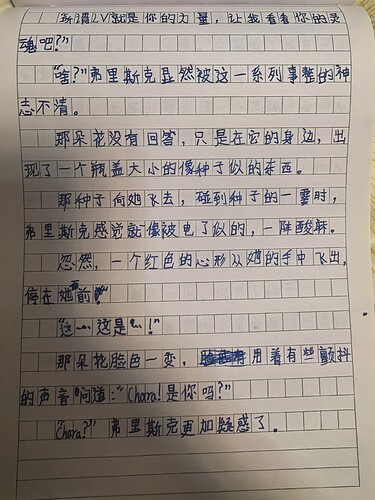 所谓LV就是你的力量，让我看看你的灵
魂吧？”
“啥？”弗里斯克显然被这一系列事整的神
志不清。
那朵花没有回答，只是在它的身边，出
现了一个瓶盖大小的像种子似的东西。
那种子向她飞去，碰到种子的一霎时，
弗里斯克感觉就像被电了似的，一阵酸麻。
忽然，一个红色的心形从她的手中飞出，
停在她前
“这…这是…！”
那朵花脸色一变，用着有些颤抖
的声音问道：“Chara！是你吗？”
“Chara？”弗里斯克更加疑惑了。